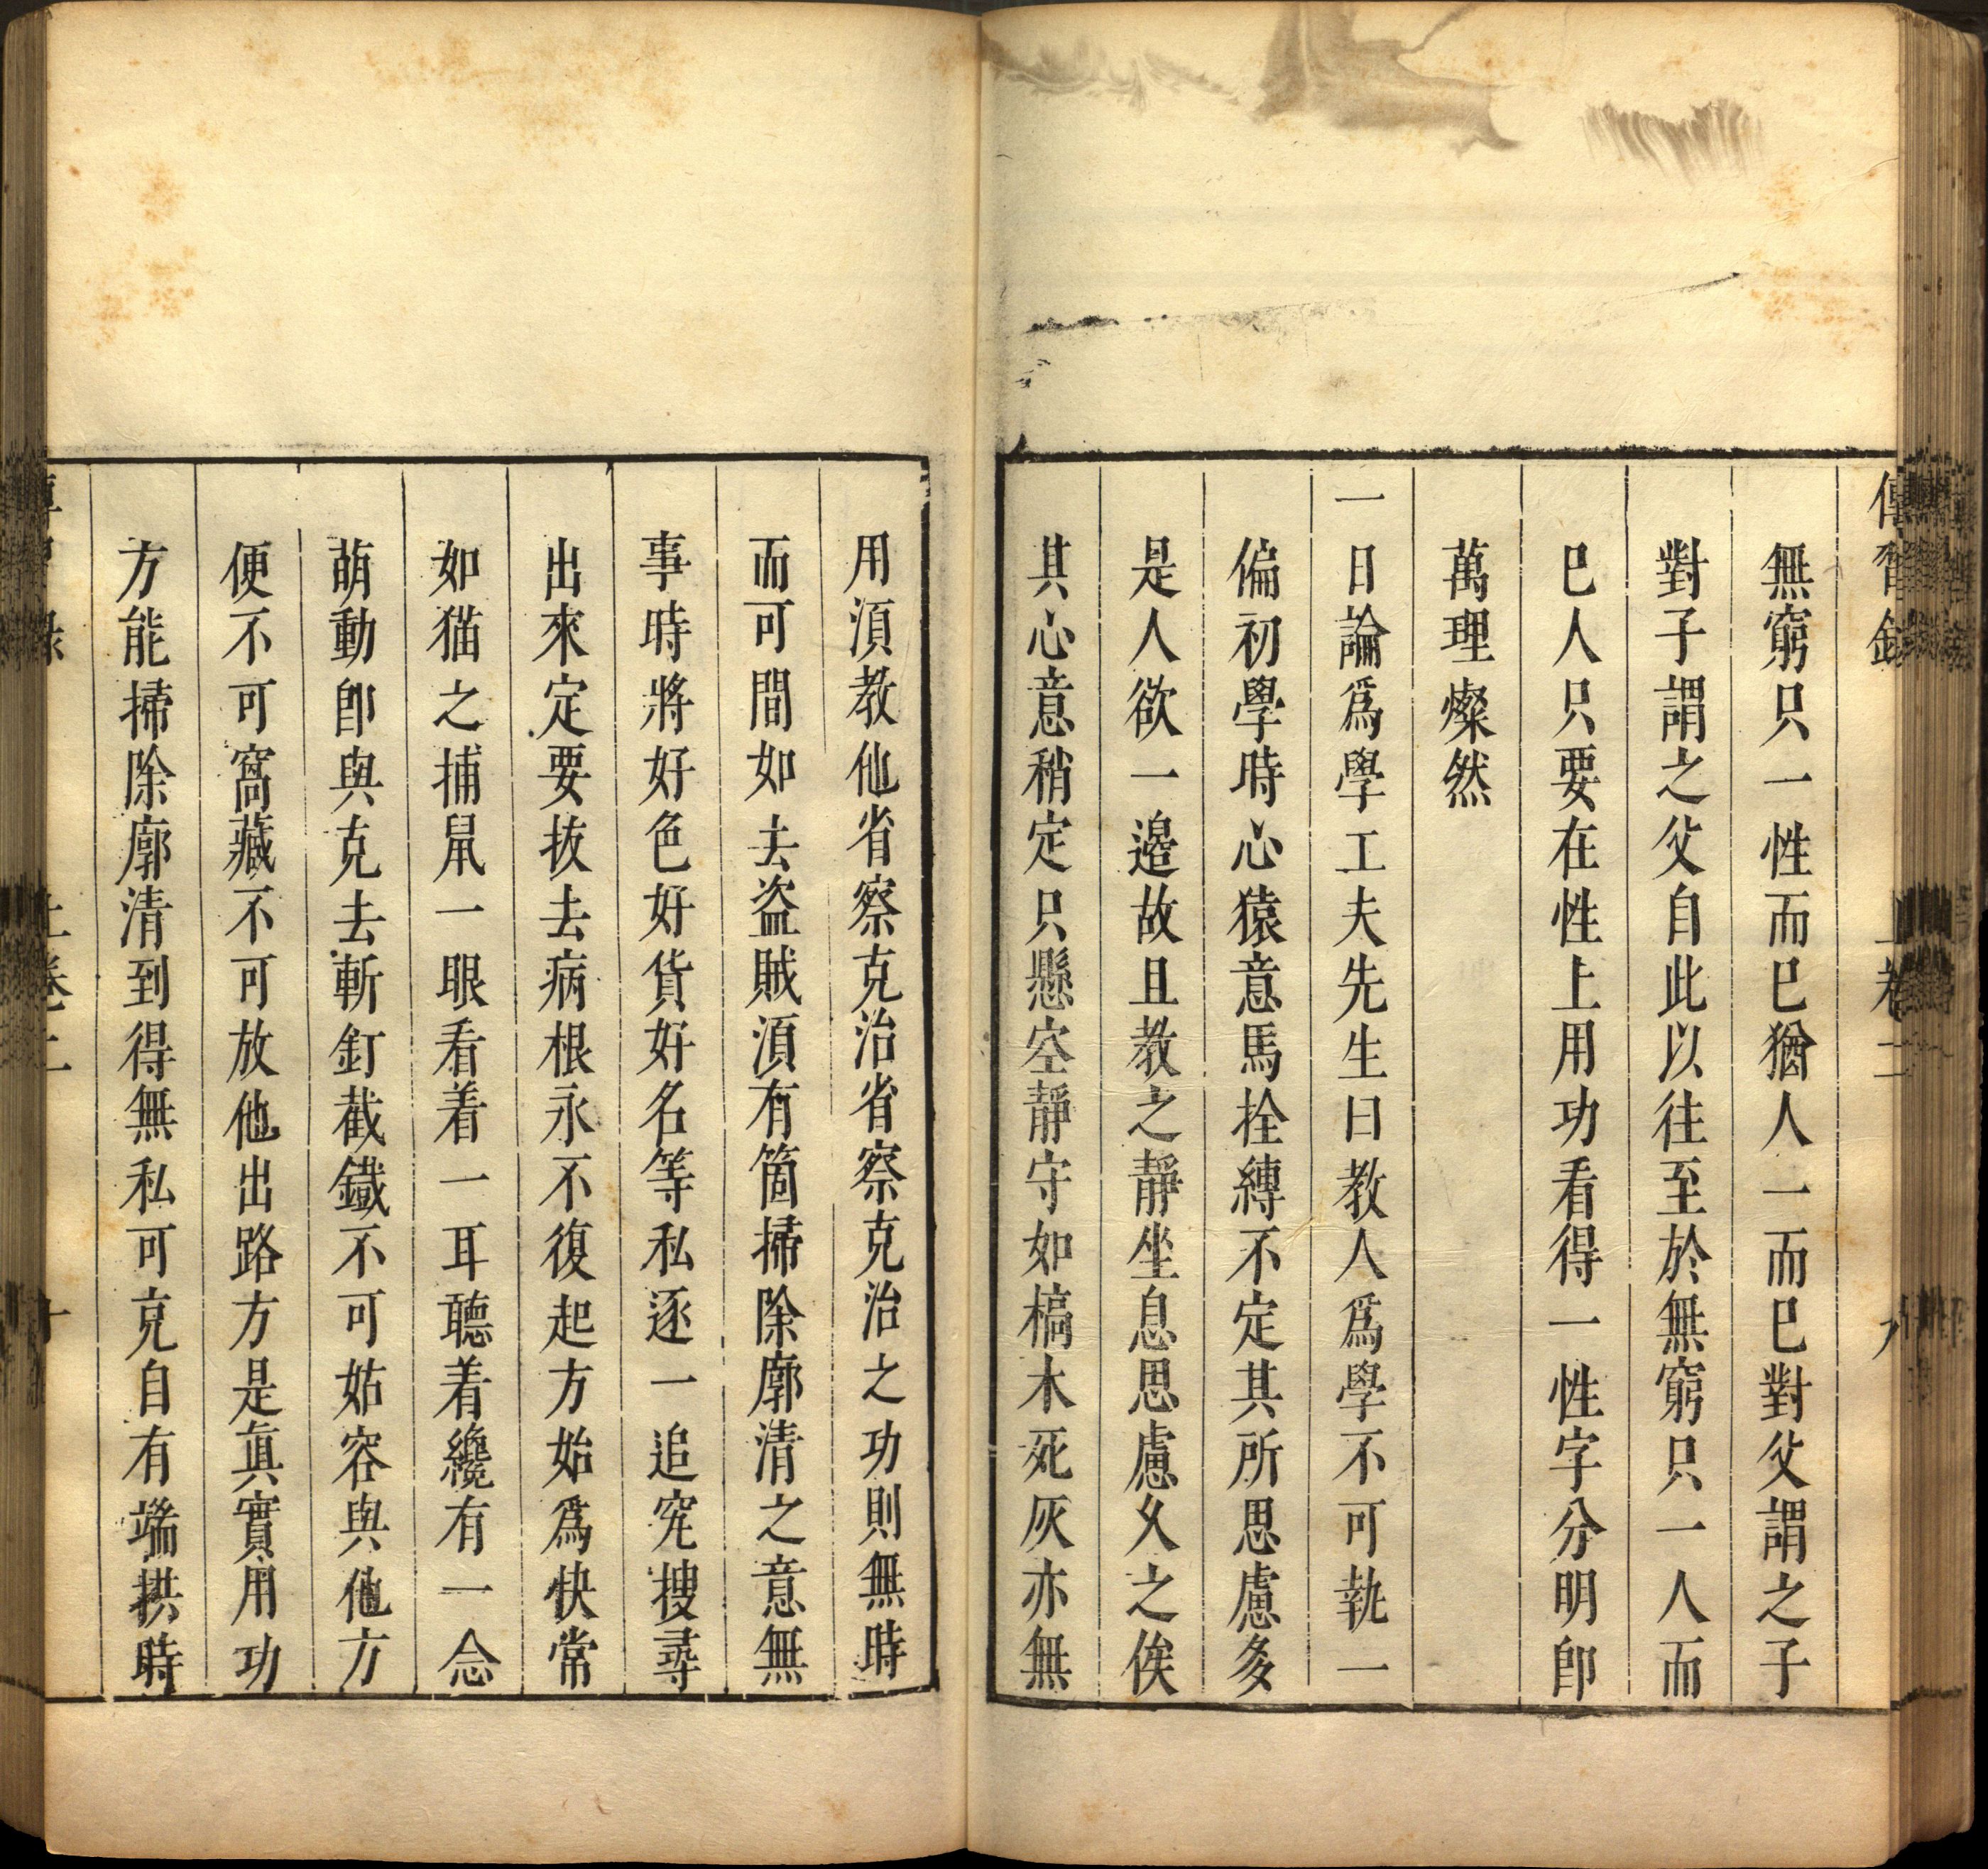 傳習錄 上卷二
無窮只一性而已猶人一而已對父謂之子
對子謂之父自此以往至於無窮只一人而
已人只要在性上用功看得一性字分明卽
萬理燦然
一日論爲學工夫先生曰教人爲學不可執一
偏初學時心猿意馬拴縛不定其所思慮多
是人欲一邉故且教之靜坐息思慮久之俟
其心意稍定只懸空靜守如槁木死灰亦無
用湏教他省察克治省察克治之功則無時
而可間如去盜賊湏有箇掃除廓清之意無
事時將好色好貨好名等私逐一追究搜尋
出來定要拔去病根永不復起方始爲快常
如猫之捕鼠一眼看着一耳聽着纔有一念
萌動卽與克去斬釘截鐵不可姑容與他方
便不可窩藏不可放他出路方是真實用功
方能掃除廓清到得無私可克自有端拱時
錄 上卷二 十